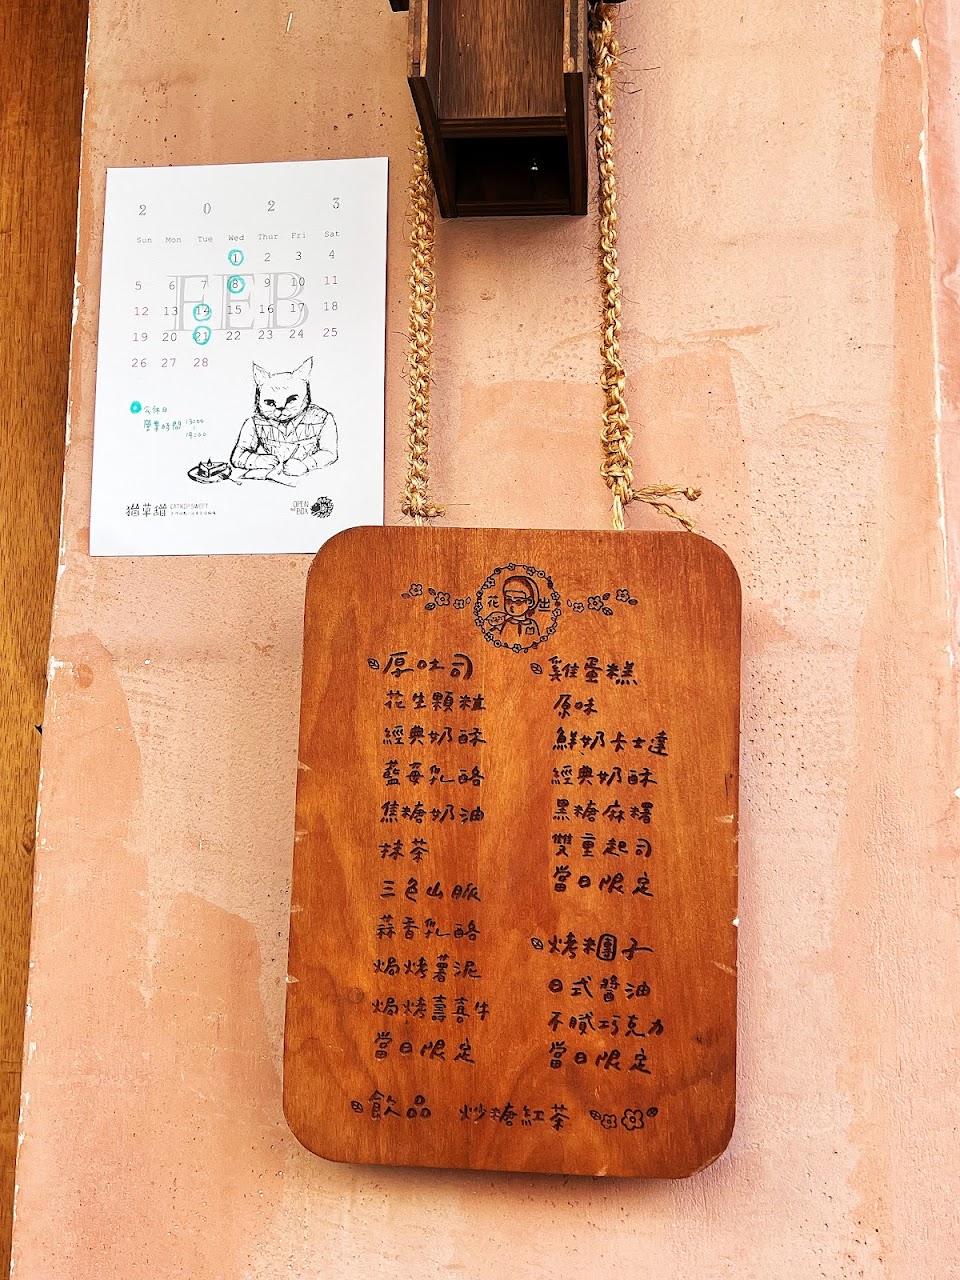 2 0 2 3
Sun Mon Tue Wed Thur Fri Sat
1 2 3 4
5 6 7 8 9 10 11
FEB
12 13 14 15 16 17 18
19 20 21 22 23 24 25
26 27 28
公休日
營業時間 13:00
|
19:00
貓草甜 CATNIP SWEET
OPEN
THE BOX
花 出
厚吐司
花生顆粒
經典奶酥
藍莓乳酪
焦糖奶油
抹茶
三色山脈
蒜香乳酪
焗烤薯泥
焗烤壽喜牛
當日限定
雞蛋糕
原味
鮮奶卡士達
經典奶酥
黑糖麻糬
雙重起司
當日限定
烤米團子
日式醬油
不膩巧克力
當日限定
飲品 炒糖紅茶